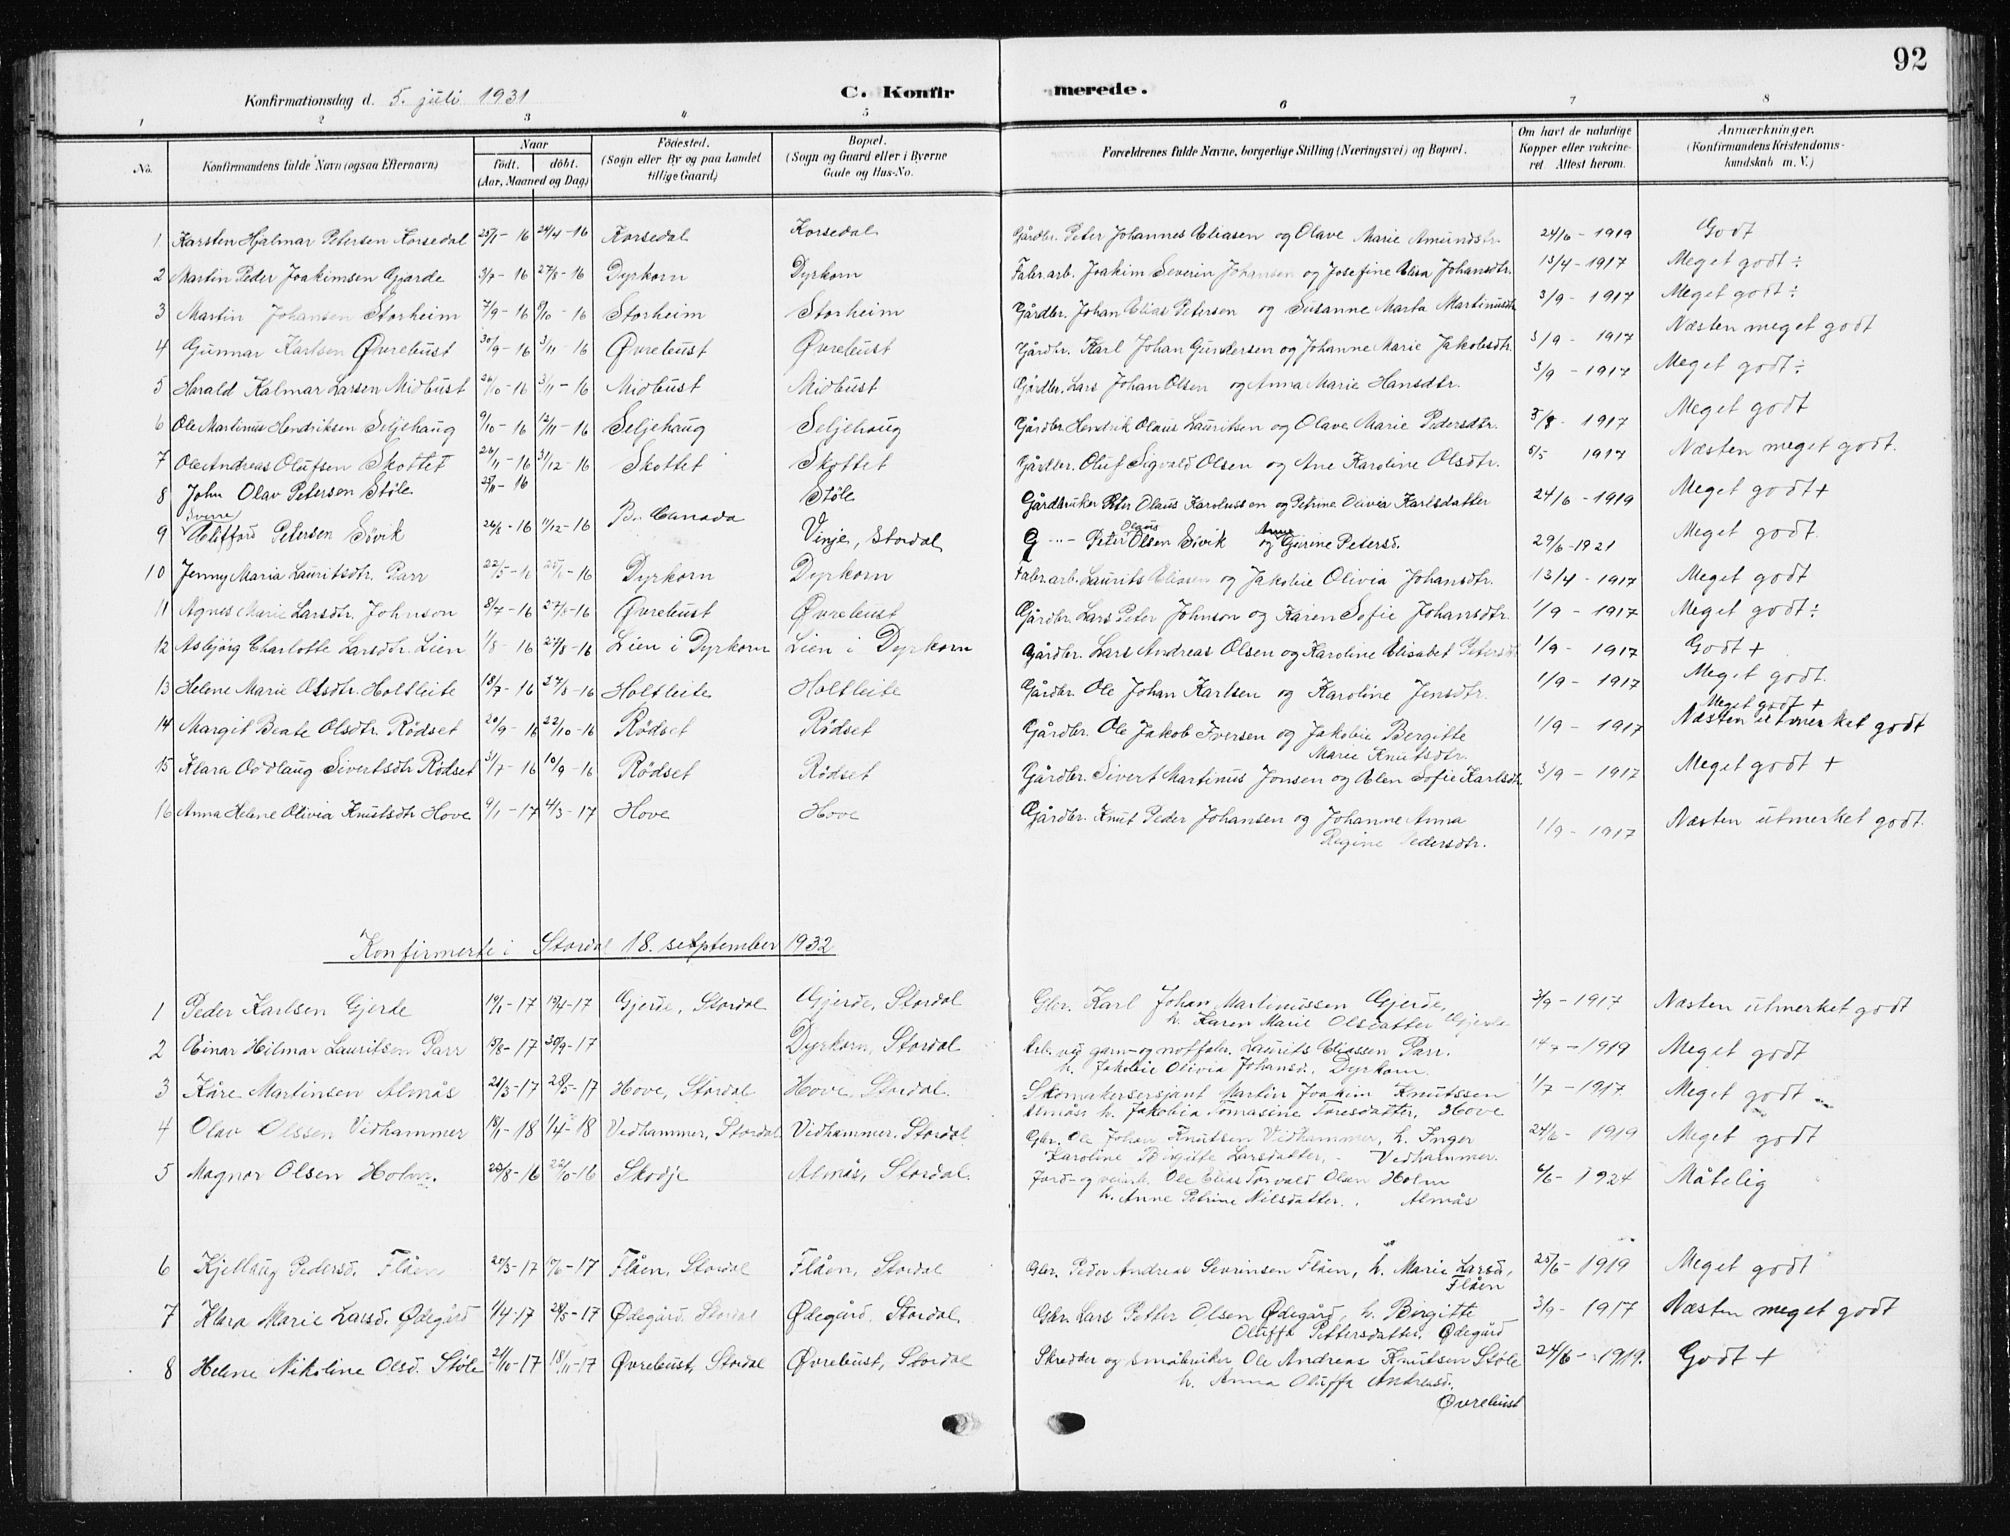 92
Konfirmationsdag d. 5. juli 1931 C. Konfirmerede.
1 2 3 4 5 6 7 8
No. Konfirmandens fulde Navn (ogsaa Efternavn) Naar født. døbt. (Aar, Maaned og Dag) Fødested. (Sogn eller By og paa Landet tillige Gaard) Bopæl. (Sogn og Gaard eller i Byerne Gade og Hus-No. Forældrenes fulde Navne, borgerlige Stilling (Næringsvei) og Bopæl. Om havt de naturlige Kopper eller vakcineret Attest herom. Anmærkninger. (Konfirmandens Kristendomskundskab m. V.)
1 Karsten Hjalmar Petersen Korsedal 25/1-16 24/4-16 Korsedal Korsedal Gårdbr. Peter Johannes Eliasen og Olave Marie Amundsdtr. 24/6-1919 Godt
2 Martin Peder Joakimsen Gjærde 3/7-16 27/8-16 Dyrkorn Dyrkorn Fabr.arb. Joakim Severin Johansen og Josefine Elisa Johansdtr. 13/4-1917 Meget godt ÷
3 Martin Johansen Storheim 7/9-16 8/10-16 Storheim Storheim Gårdbr. Johan Elias Petersen og Susanne Marta Martinusdtr 3/9-1917 Meget godt ÷
4 Gunnar Karlsen Øvrebust 30/9-16 3/11-16 Øvrebust Øvrebust Gårdbr. Karl Johan Gundersen og Johanne Marie Jakobsdtr. 3/9-1917 Næsten meget godt
5 Harald Kalmar Larsen Midbust 26/10-16 3/11-16 Midbust Midbust Gårdbr. Lars Johan Olsen og Anna Marie Hansdtr. 3/9-1917 Meget godt ÷
6 Ole Martinus Hendriksen Seljehaug 9/10-16 12/11-16 Seljehaug Seljehaug Gårdbr. Hendrik Olaus Lauritsen og Olave Marie Pedersdtr. 3/8-1917 Meget godt
7 Ole Andreas Olufsen Skottet 26/11-16 31/12-16 Skottet Skottet Gårdbr. Oluf Sigvald Olsen og Ane Karoline Olsdtr. 5/5 1917 Næsten meget godt.
8 John Olav Petersen Støle 25/11-16 Støle Gårdbruker Peter Olaus Karolussen og Petrine Olivia Karlsdatter 24/6-1919 Meget godt +
Sverre
9 Clifford Petersen Søvik 26/6-16 11/12-16 Canada Vinje, Stordal G --- Peter Olaus Olsen Sivik og Gurine Petersd. 29/6-1921 Meget godt.
10 Jenny Maria Lauritsdtr. Parr 22/5-16 -16 Dyrkorn Dyrkorn Fabr.arb. Laurits Eliasen og Jakobie Olivia Johansdtr. 13/4-1917 Meget godt
11 Agnes Marie Larsdtr. Johnson 8/7-16 27/8-16 Øvrebust Øvrebust Gårdbr. Lars Peter Johnson og Karen Sofie Johansdtr. 1/9-1917 Meget godt ÷
12 Asbjörg Charlotte Larsdtr. Lien 1/8-16 27/8-16 Lien i Dyrkorn Lien i Dyrkorn Gårdbr. Lars Andreas Olsen og Karoline Elisabet Petersdtr 1/9-1917 Godt +
13 Helene Marie Olsdtr. Holtleite 18/7-16 27/8-16 Holtleite Holtleite Gårdbr. Ole Johan Karlsen og Karoline Jensdtr. 1/9-1917 Meget godt.
Meget godt +
14 Margit Beate Olsdtr. Rödset 20/9-16 22/10-16 Rödset Rödset Gårdbr. Ole Jakob Iversen og Jakobie Bergitte 1/9-1917 Næsten utmerket godt
Marie Knutsdtr.
15 Klara Oddlaug Sivertsdtr Rödset 31/7-16 10/9-16 Rödset Rödset Gårdbr. Sivert Martinus Jonsen og Elen Sofie Karlsdtr 3/9-1917 Meget godt +
16 Anna Helene Olivia Knutsdtr Hove 9/1-17 4/3-17 Hove Hove Gårdbr. Knut Peder Johansen og Johanne Anna 1/9-1917 Næsten utmerket godt.
Regine Pedersdtr.
Konfirmerte i Stordal 18. september 1932
1 Peder Karlsen Gjerde 19/1-17 -17 Gjerde, Stordal Gjerde, Stordal Gbr. Karl Johan Martinussen Gjerde, 3/9-1917 Næsten utmerket godt
h. Karen Marie Olsdatter Gjerde
2 Einar Hilmar Lauritsen Parr 15/8-17 30/9-17 Dyrkorn, Stordal Arb. ved garn- og notfabr. Laurits Eliassen Parr. -1919 Meget godt
h. Jakobie Olivia Johansd., Dyrkorn.
3 Kåre Martinsen Almås 21/3-17 28/5-17 Hove, Stordal Hove, Stordal. Skomakersersjant Martin Joakim Knutssen 1/7-1917 Meget godt
Almås h. Jakobia Tomasine Toresdatter, Hove
4 Olav Olssen Vidhammer 19/1-18 1/4-18 Vedhammer, Stordal Vidhammer, Stordal Gbr. Ole Johan Knutsen Vidhammer, h. Inger 24/6-1919 Meget godt
Karoline Birgitte Larsdatter, Vedhammer.
5 Magnar Olsen Holm. 23/8-16 22/10-16 Skodje Almås, Stordal. Jord- og veiarb. Ole Elias Torvald Olsen Holm 4/6-1924 Måtelig
h. Anne Petrine Nilsdatter, Almås
6 Kjellaug Pedersd. Flåen 20/3-17 17/6-17 Flåen, Stordal Flåen, Stordal Gbr. Peder Andreas Sevrinsen Flåen, h. Marie Larsd., 25/6-1919 Meget godt
Flåen
7 Klara Marie Larsd. Ødegård 1/4-17 28/5-17 Ødegård, Stordal Ødegård, Stordal. Gbr. Lars Petter Olsen Ødegård, h. Birgitte 3/9-1917 Næsten meget godt
Oluffa Pettersdatter, Ødegård
8 Helene Nikoline Olsd. Støle 21/10-17 18/11-17 Øvrebust, Stordal Øvrebust, Stordal Skredder og småbruker Ole Andreas Knutsen Støle 24/6-1919. Godt +
h. Anna Oluffa Andreasd.,
Øvrebust